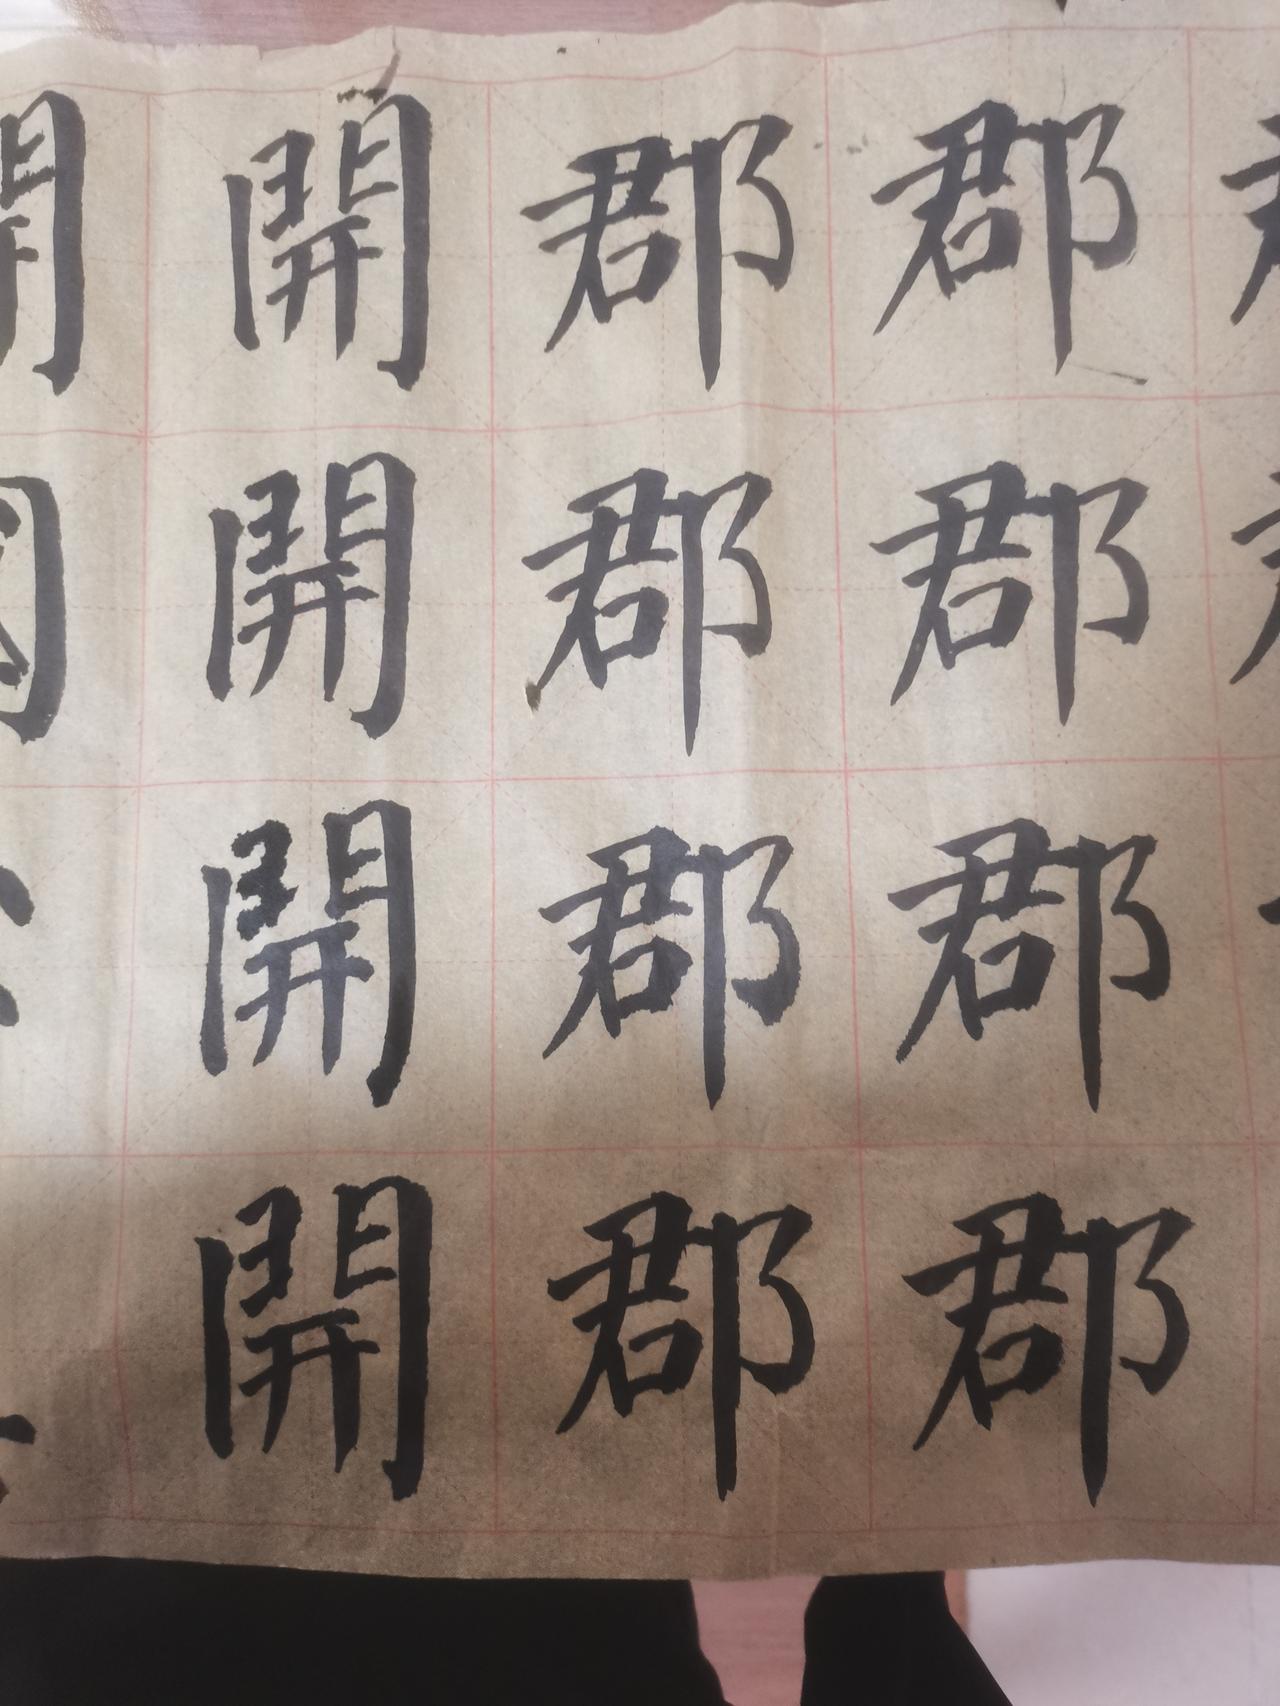 郡郡郡郡
郡郡郡郡
開開開開
開